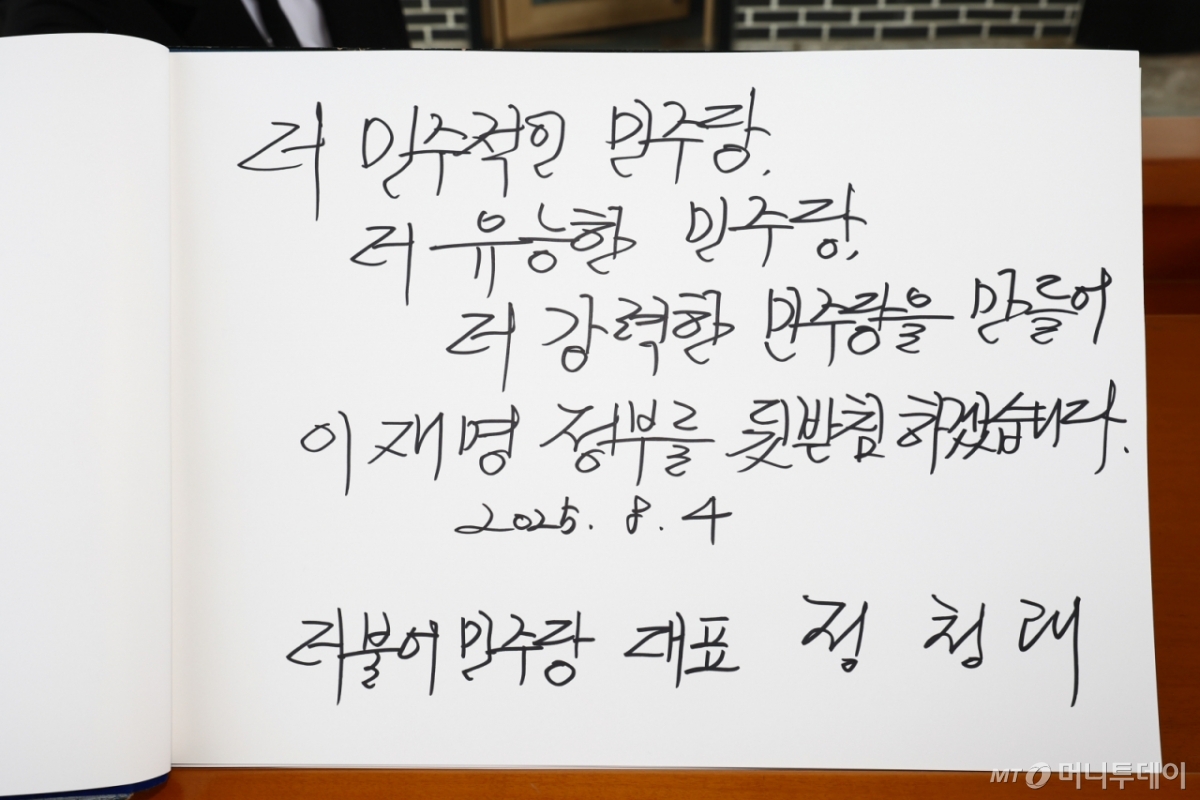 더 민주적인 민주당,
더 유능한 민주당,
더 강력한 민주당을 만들어
이재명 정부를 뒷받침 하겠습니다.
2025. 8. 4
더불어민주당 대표 정청래
MT 머니투데이